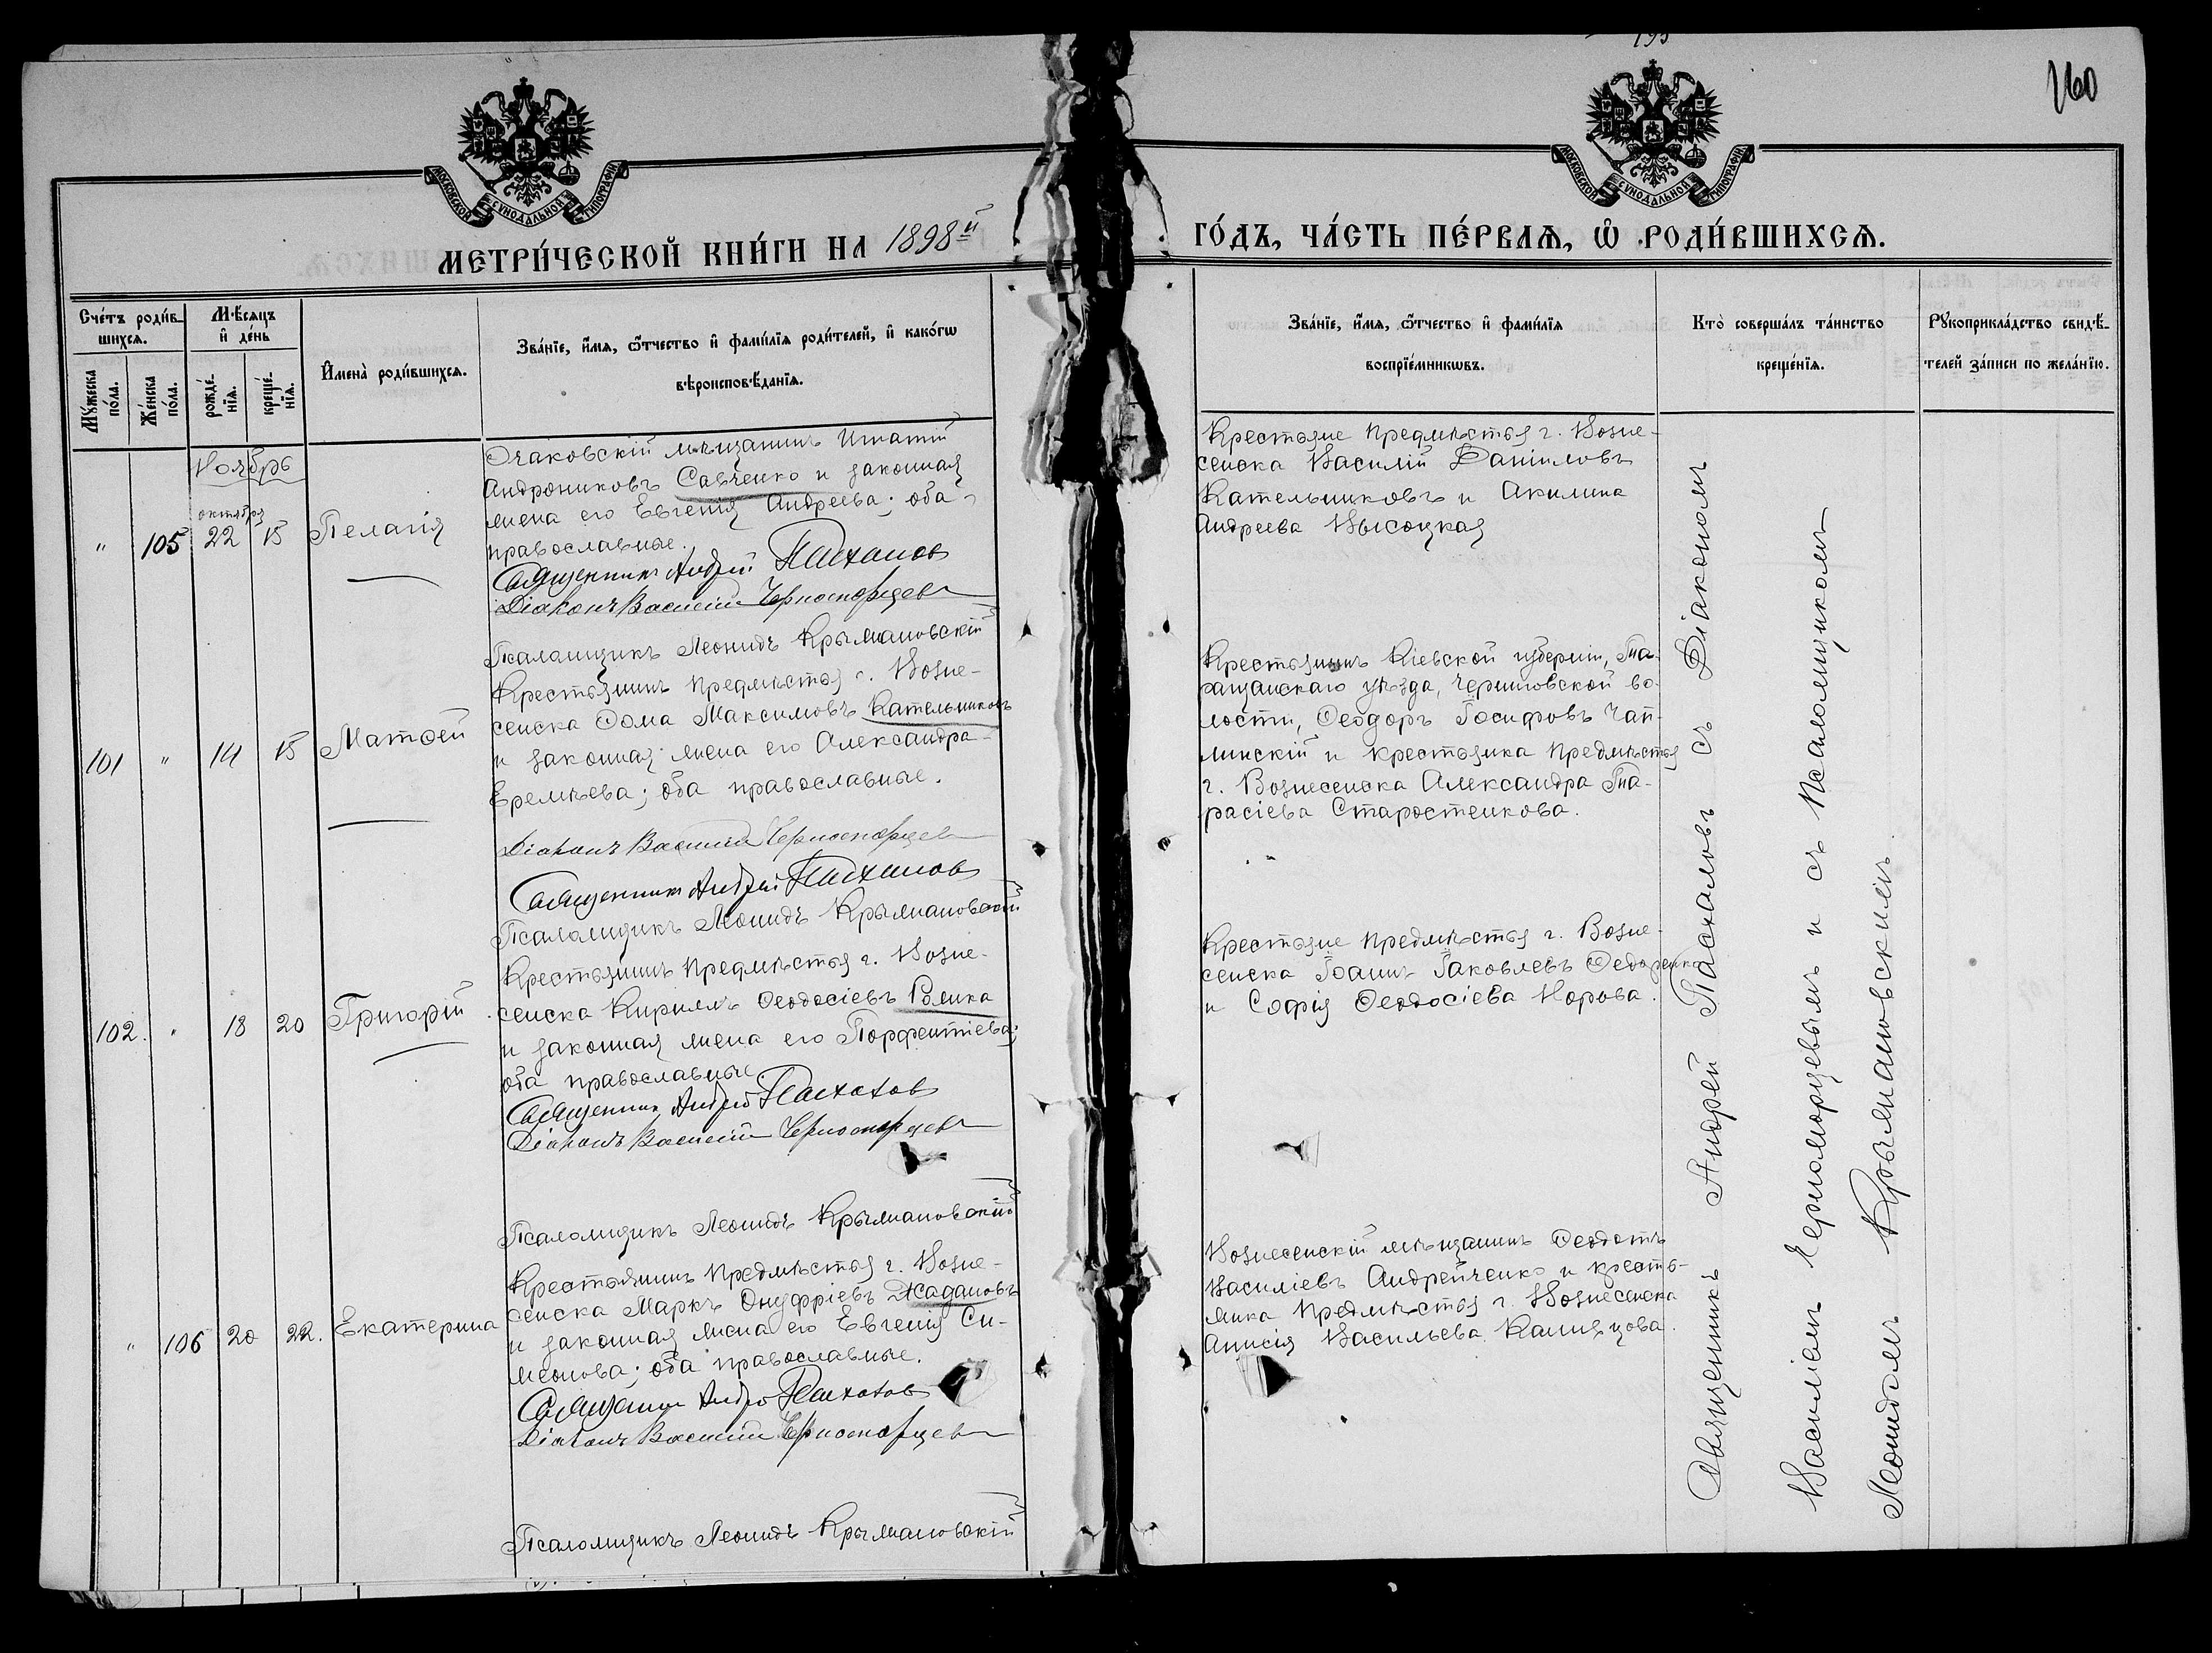 193
160
МОСКОВСКОЙ СѴНОДАЛЬНОЙ ТИПОГРАФІИ
МОСКОВСКОЙ СѴНОДАЛЬНОЙ ТИПОГРАФІИ
МЕТРИ́ЧЕСКОЙ КНИ́ГИ НА 1898й
ГО́ДЪ, ЧА́СТЬ ПЕ́РВАѦ, Ѿ РОДИ́ВШИХСѦ.
Сче́тъ роди́в-
шихсѧ.
Мꙋ́жеска по́ла.
Же́нска по́ла.
Мѣ́сѧцъ
и҆ де́нь
рожде́-
нїѧ.
креще́-
нїѧ.
И҆мена̀ роди́вшихсѧ.
Зва́нїе, и҆́мѧ, ѻ҆́тчество и҆ фами́лїѧ роди́телей, и҆ како́гѡ
вѣроисповѣ́данїѧ.
Зва́нїе, и҆́мѧ, ѻ҆́тчество и҆ фами́лїѧ
воспрїе́мникѡвъ.
Кто̀ соверша́лъ та́инство
креще́нїѧ.
Рꙋкоприкла́дство свидѣ́-
телей за́писи по жела́нїю.
Ноябрь
" 105 октября 22 15 Пелагія
Очаковскій мѣщанинъ Игнатій
Андрониковъ Савченко и законная
жена его Евгенія Андреева; оба
православные.
Священникъ Андрей Пасхалов
Діаконъ Василій Черноморцевъ
Псаломщикъ Леонидъ Крыжановскій
Крестьяне предмѣстья г. Возне-
сенска Василій Даніиловъ
Кательниковъ и Акилина
Андреева Высоцкая
101 " 14 15 Матѳей
Крестьянинъ предмѣстья г. Возне-
сенска Ѳома Максимовъ Кательниковъ
и законная жена его Александра
Еремѣева; оба православные.
Діаконъ Василій Черноморцевъ
Священникъ Андрей Пасхалов
Псаломщикъ Леонидъ Крыжановскій
Крестьянинъ Кіевской губерніи, Та-
ращанскаго уѣзда, во-
лости, Ѳеодоръ Іосифовъ Чап-
линскій и крестьянка предмѣстья
г. Вознесенска Александра Та-
расіева Старостенкова.
102. " 18 20 Григорій
Крестьянинъ предмѣстья г. Возне-
сенска Кириллъ Ѳеодосіевъ
и законная жена его Порфентіева;
оба православные.
Священник Андрей Пасхалов
Діаконъ Василій Черноморцевъ
Псаломщикъ Леонидъ Крыжановскій
Крестьяне предмѣстья г. Возне-
сенска Іоаннъ Іаковлевъ Ѳедоренко
и Софія Ѳеодосіева Норова.
" 106 20 22. Екатерина
Крестьянинъ предмѣстья г. Возне-
сенска Маркъ Онуфріевъ Жадановъ
и законная жена его Евгенія Си-
меонова; оба православные.
Священник Андрей Пасхалов
Діаконъ Василій Черноморцевъ
Псаломщикъ Леонидъ Крыжановскій
Вознесенскій мѣщанинъ Ѳеодотъ
Василіевъ Андрейченко и кресть-
янка предмѣстья г. Вознесенска
Анисія Васильева
Священникъ Андрей Пасхаловъ съ Діакономъ
Василіемъ Черноморцевымъ и съ Псаломщикомъ
Леонидомъ Крыжановскимъ.